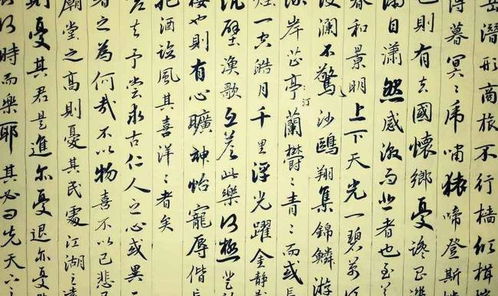 岳潛形商旅不行檣傾楫
薄暮冥々虎嘯猿啼登斯
也則有去國懷鄉憂讒畏
滿目瀟然感激者也至
春和景明上下天光一碧萬
波瀾不驚沙鷗翔集錦鱗游
岸芷亭蘭鬱々青々而或
汀
煙一空皓月千里浮光躍金靜
沉璧漁歌互答此樂何極登
樓也則有心曠神怡寵辱偕
把酒臨風其喜洋々者矣
夫予嘗求古仁人之心或異二
者之為何哉不以物喜不以己悲
廟堂之高則憂其民處江湖之遠
則憂其君是進亦憂退亦憂
何時而樂耶其必曰先天下